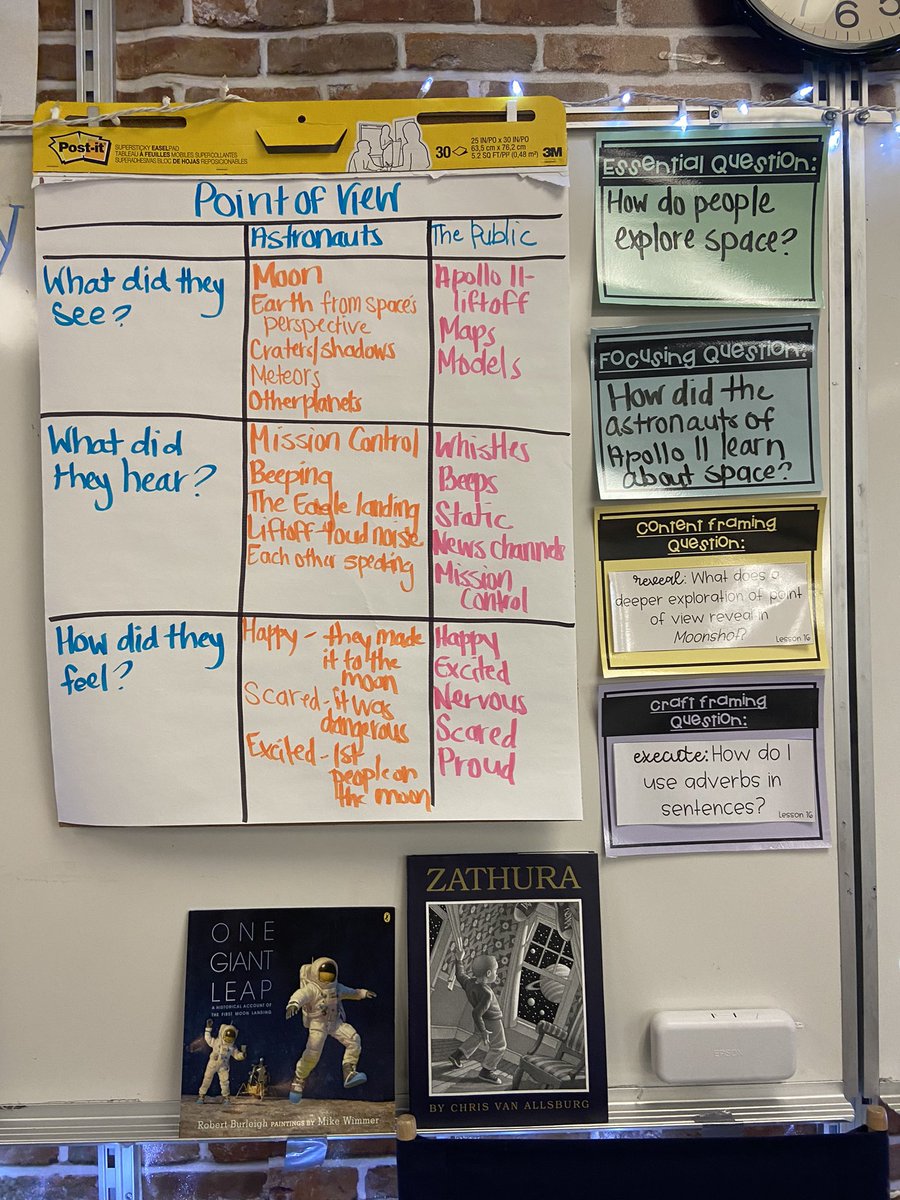 6
5
Post-it
SUPERSTICKY EASEL PAD
TABLEAU À FEUILLES MOBILES SUPERCOLLANTES
SUPERADHESIVAS BLOC DE HOJAS REPOSICIONABLES
30
25 IN/PO x 30 IN/PO
63,5 cm x 76,2 cm
5.2 SQ FT/PP² (0,48 m²)
3M
Point of View
Astronauts
The Public
What did they
see?
Moon
Earth from space's
perspective
Craters/shadows
Meteors
Other planets
Apollo 11-
liftoff
Maps
Models
What did
they hear?
Mission Control
Beeping
The Eagle landing
Liftoff-loud noise
Each other speaking
Whistles
Beeps
Static
News channels
Mission
Control
How did they
feel?
Happy - they made
it to the
moon
Scared - it was
dangerous
Excited - 1st
people on
the moon
Happy
Excited
Nervous
Scared
Proud
Essential Question:
How do people
explore space?
Focusing Question:
How did the
astronauts of
Apollo 11 learn
about space?
Content Framing
Question:
reveal: What does a
deeper exploration of point
of view reveal in
Moonshot?
Lesson 16
Craft Framing
Question:
execute: How do I
use adverbs in
sentences?
Lesson 16
ONE
GIANT
LEAP
A HISTORICAL ACCOUNT OF
THE FIRST MOON LANDING
Robert Burleigh PAINTINGS BY Mike Wimmer
ZATHURA
BY CHRIS VAN ALLSBURG
EPSON